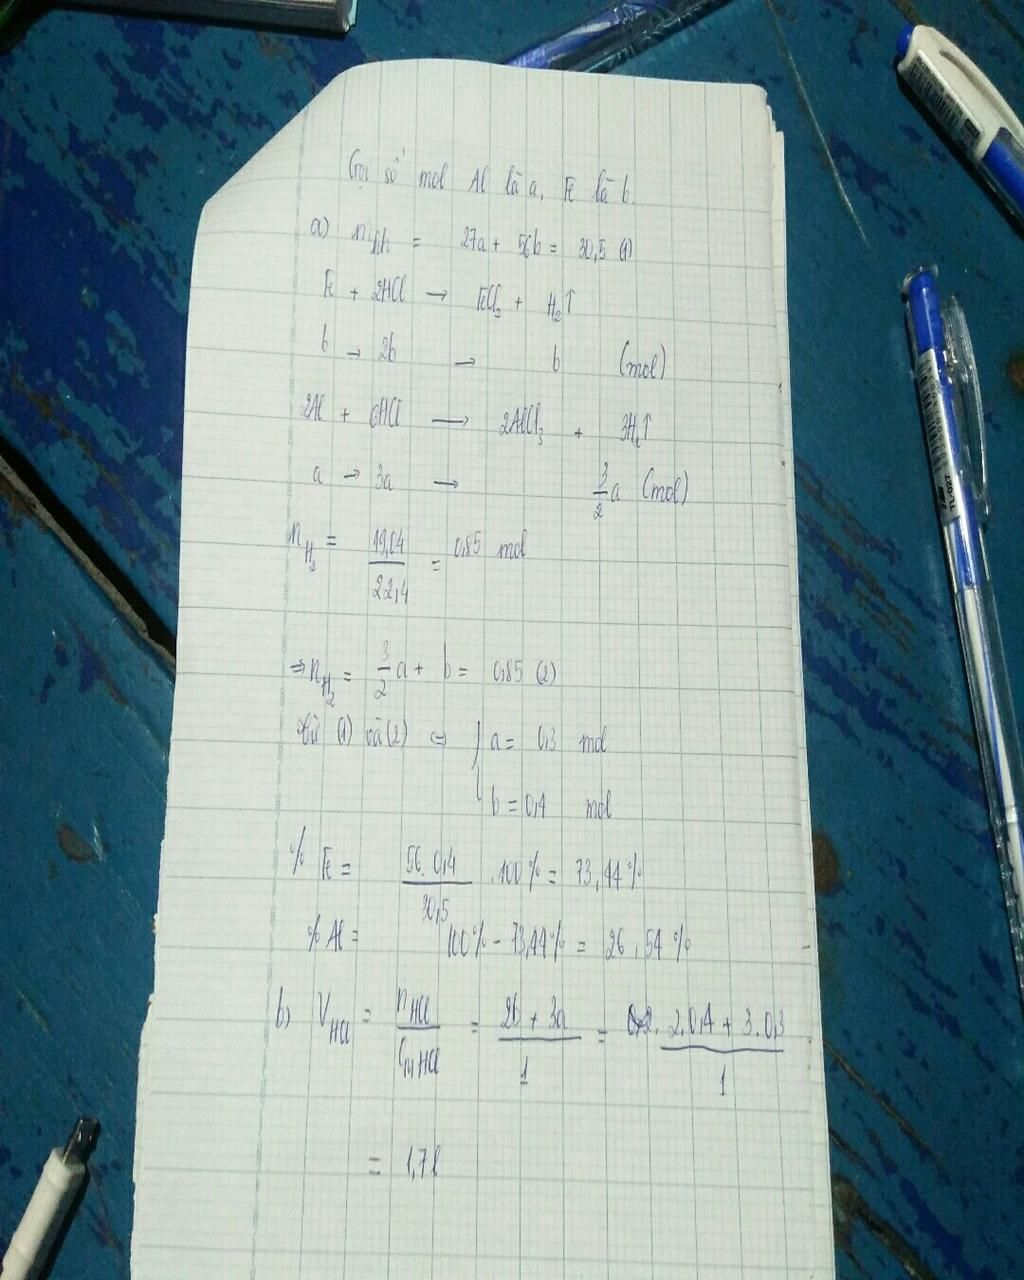 Gọi số mol Al là a, Fe là b.
a) mhh = 27a + 56b = 30,5 (1)
Fe + 2HCl → FeCl₂ + H₂↑
b → 2b → b (mol)
2Al + 6HCl → 2AlCl₃ + 3H₂↑
a → 3a → 3/2 a (mol)
n H₂ = 19,04/22,4 = 0,85 mol
⇒ n H₂ = 3/2 a + b = 0,85 (2)
Từ (1) và (2) ⇔ { a = 0,3 mol
b = 0,4 mol
% Fe = 56.0,4/30,5 .100% = 73,44%
% Al = 100% - 73,44% = 26,54%
b) V HCl = n HCl/CM HCl = 2b + 3a/1 = 2.0,4 + 3.0,3/1
= 1,7 l
TL-027